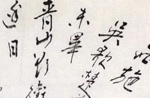 施
吳歌楚
未畢
青山行銜
邊日